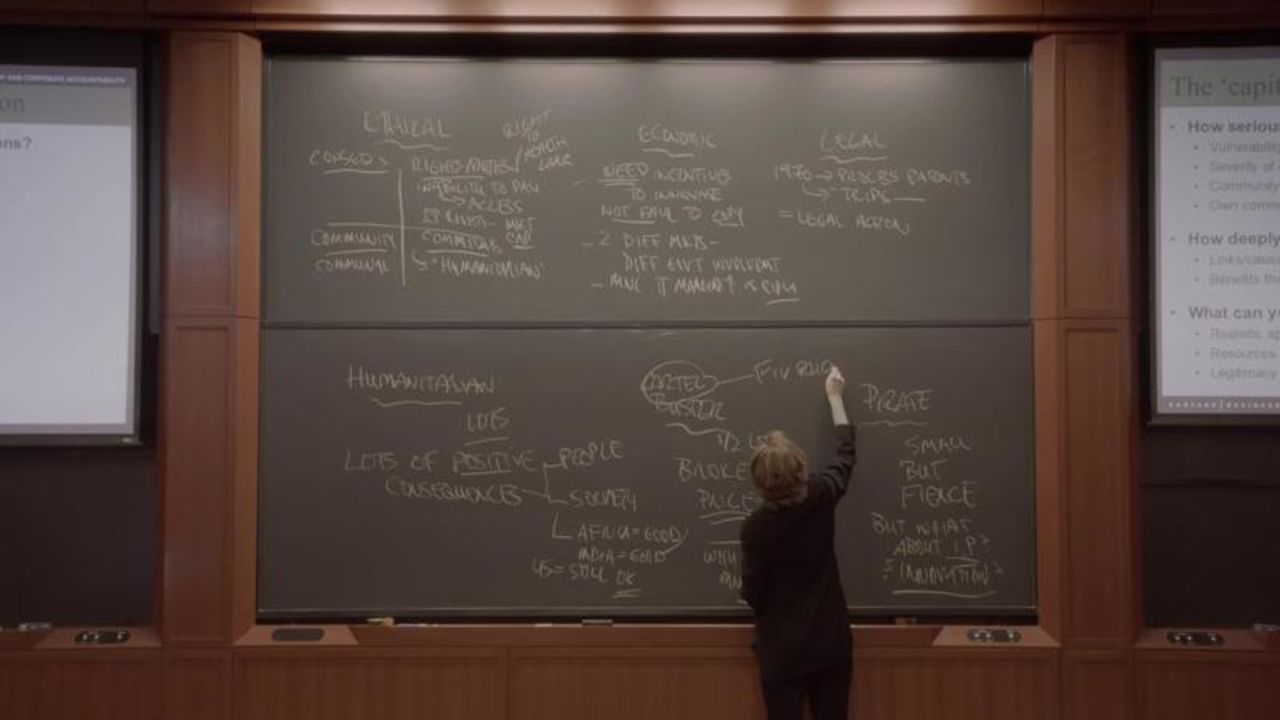 on
ns?
ETHICAL
RIGHT
TO
HEALTH
CARE
CONSEQ
INABILITY TO PAY
ACCESS
COMMUNITY
COMMUNAL
"HUMANITARIAN"
ECONOMIC
NEED INCENTIVE
TO INNOVATE
NOT FAIR TO COPY
- 2 DIFF MKTS -
DIFF GOVT INVOLVMT
LEGAL
1970 → PROCESS PATENTS
TRIPS
= LEGAL ACTION
HUMANITARIAN
LOTS
LOTS OF POSITIVE
CONSEQUENCES
PEOPLE
SOCIETY
AFRICA = GOOD
INDIA = GOOD
US = STILL OK
CARTEL
BUSTER
1/2
BROKE
PRICE
PIRATE
SMALL
BUT
FIERCE
BUT WHAT
ABOUT IP?
"INNOVATION"?
The 'capi
• How seriou
• Vulnerabili
• Severity of
• Community
• Own comm
• How deeply
• Links/caus
• Benefits th
• What can y
• Realistic ap
• Resources
• Legitimacy